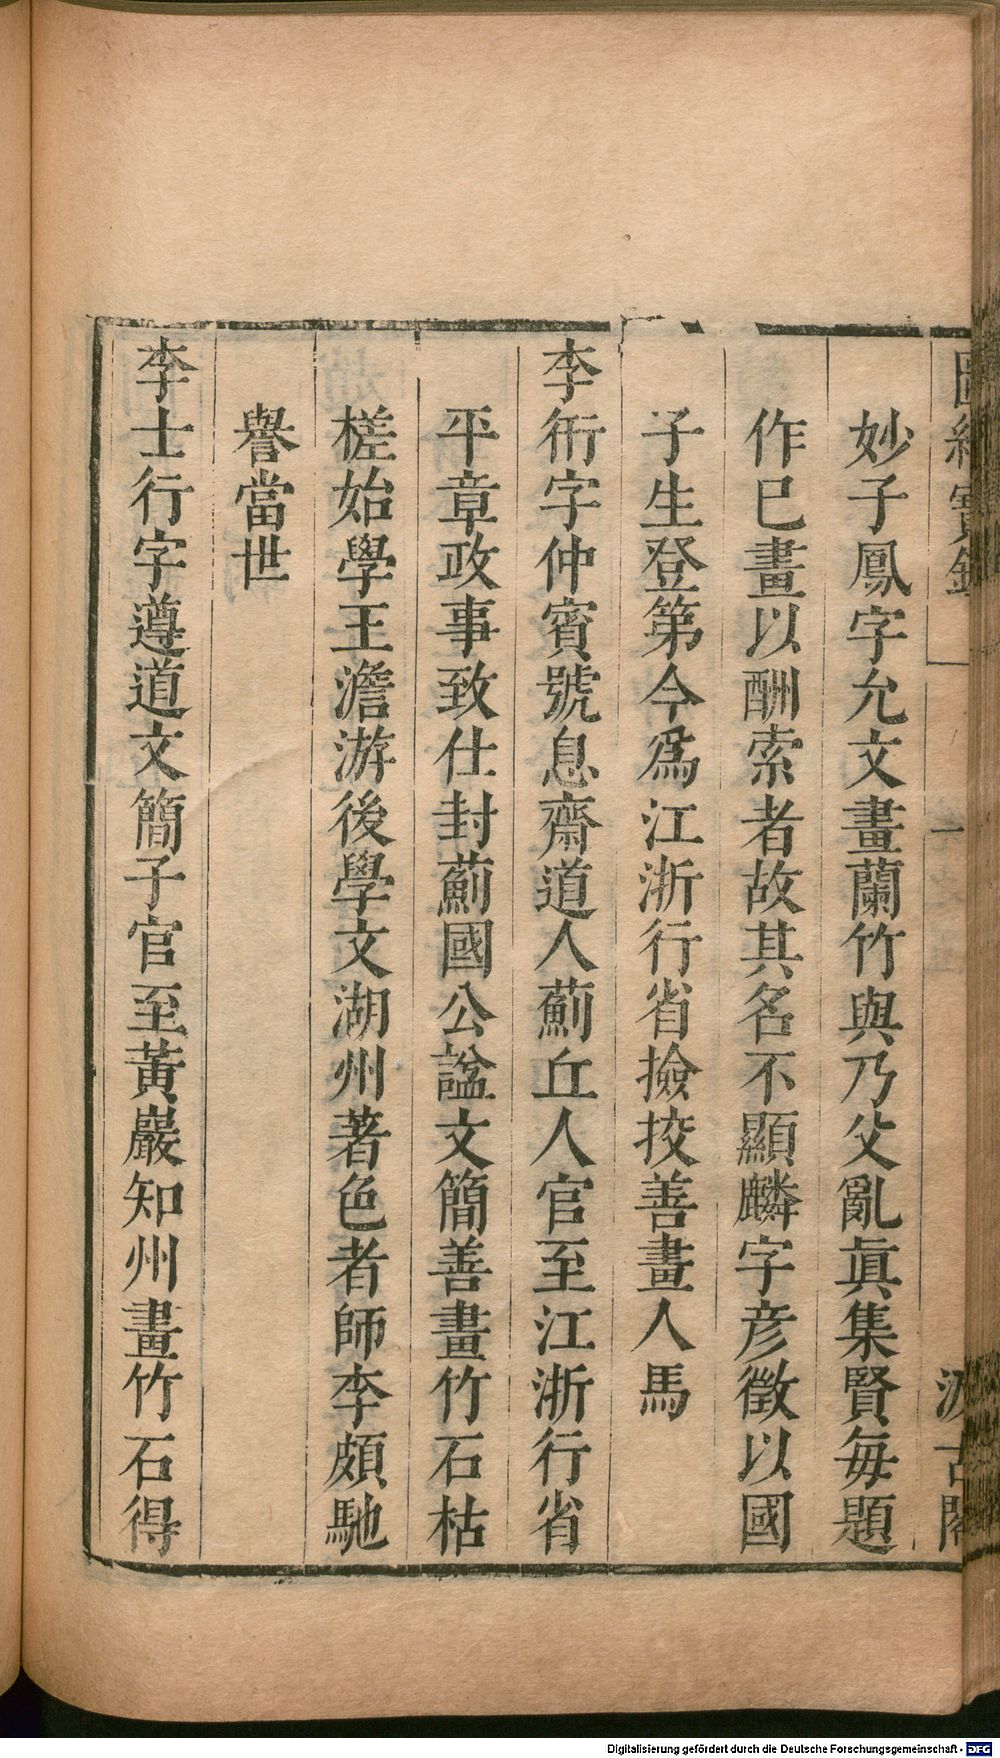 圖繪寶鑑
一
汲古閣
妙子鳳字允文畫蘭竹與乃父亂眞集賢每題
作巳畫以酬索者故其名不顯麟字彦徵以國
子生登第今爲江浙行省撿挍善畫人馬
李衎字仲賓號息齋道人薊丘人官至江浙行省
平章政事致仕封薊國公諡文簡善畫竹石枯
槎始學王澹游後學文湖州著色者師李頗馳
譽當世
李士行字遵道文簡子官至黃巖知州畫竹石得
Digitalisierung gefördert durch die Deutsche Forschungsgemeinschaft - DFG